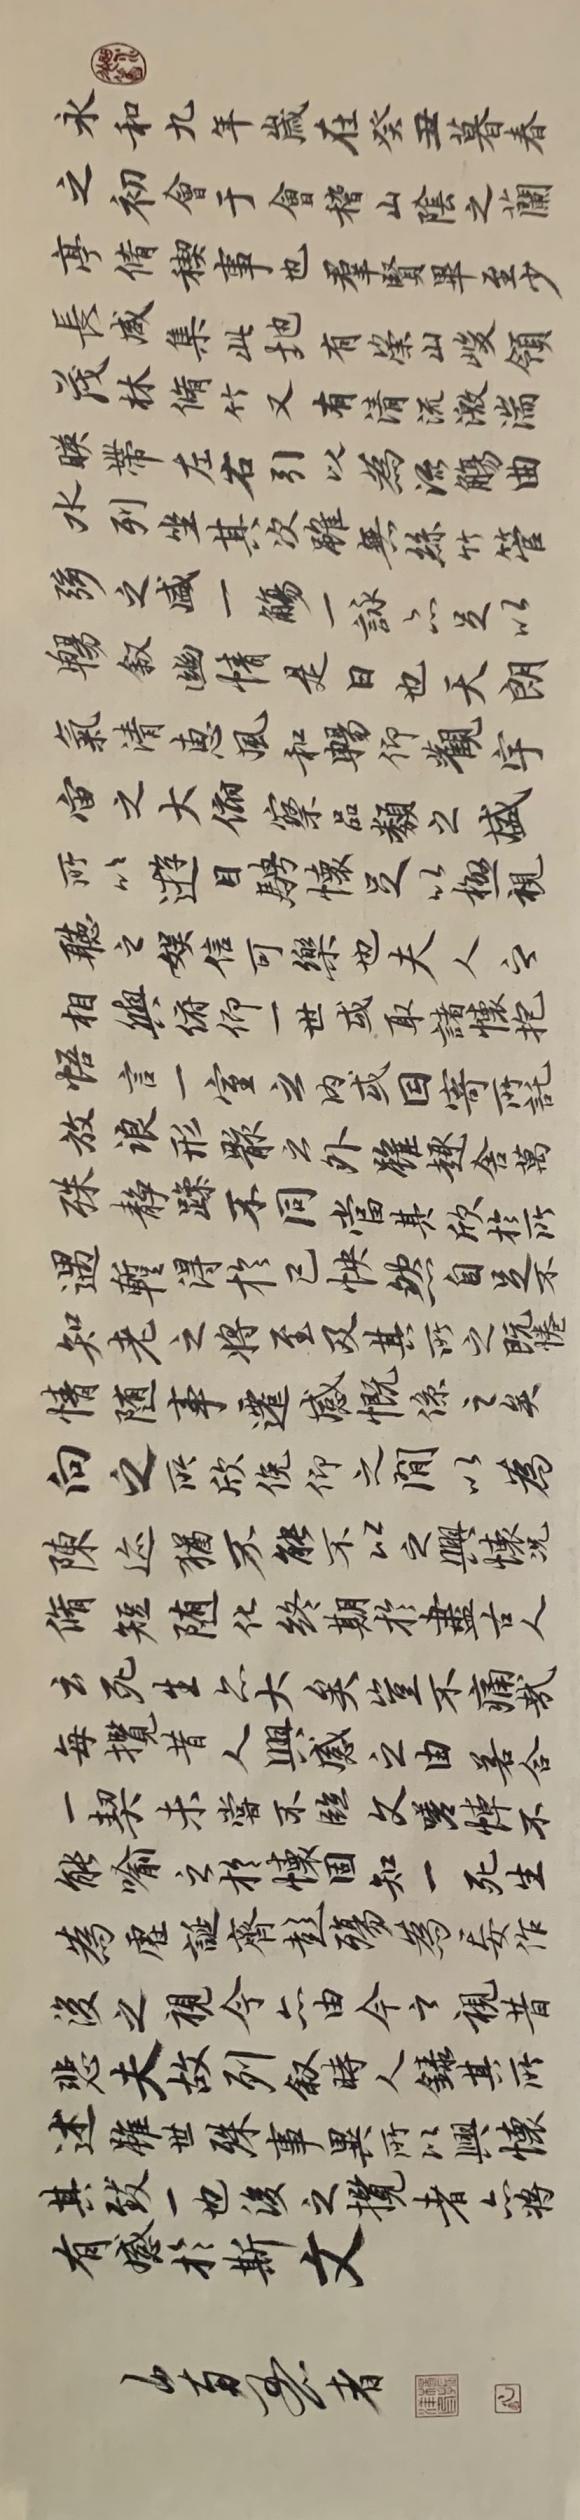 永和九年歲在癸丑暮春
之初會于會稽山陰之蘭
亭脩稧事也羣賢畢至少
長咸集此地有崇山峻領
茂林脩竹又有清流激湍
暎帶左右引以為流觴曲
水列坐其次雖無絲竹管
弦之盛一觴一詠亦足以
暢叙幽情是日也天朗
氣清惠風和暢仰觀宇
宙之大俯察品類之盛
所以遊目騁懷足以極視
聽之娛信可樂也夫人之
相與俯仰一世或取諸懷抱
悟言一室之內或因寄所託
放浪形骸之外雖趣舍萬
殊靜躁不同當其欣於所
遇暫得於己怏然自足不
知老之將至及其所之既惓
情随事遷感慨係之矣
向之所欣俛仰之閒以為
陳迹猶不能不以之興懷況
脩短随化終期於盡古人
云死生亦大矣豈不痛哉
每攬昔人興感之由若合
一契未嘗不臨文嗟悼不
能喻之於懷固知一死生
為虛誕齊彭殤為妄作
後之視今亦由今之視昔
悲夫故列叙時人錄其所
述雖世殊事異所以興懷
其致一也後之攬者亦將
有感於斯文
南者